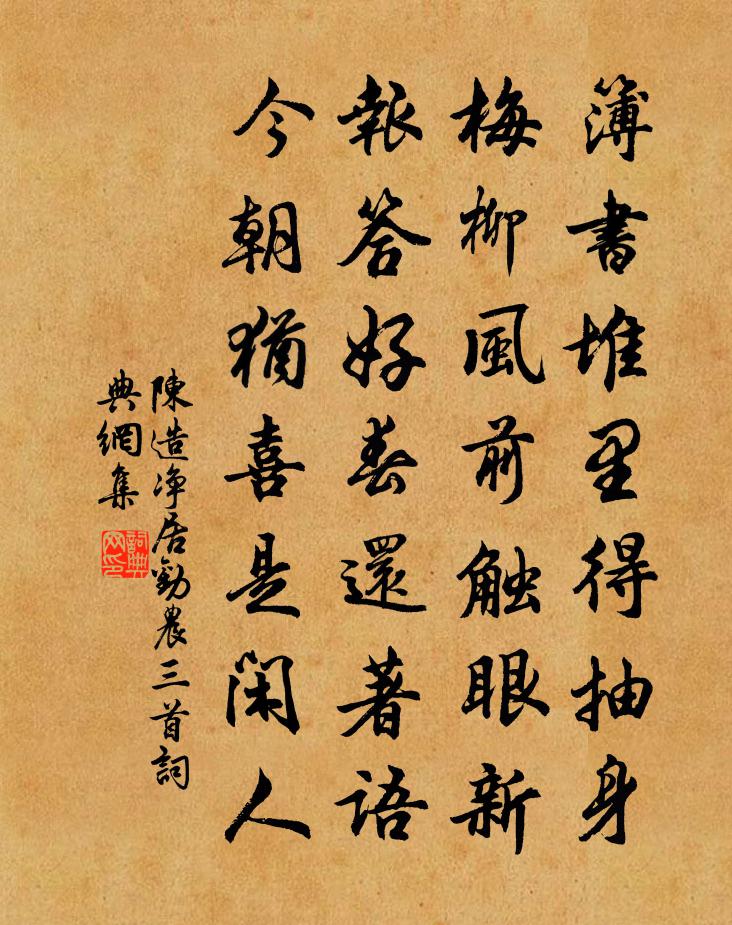 簿書堆里得抽身
梅柳風前触眼新
報答好春還著語
今朝猶喜是閑人
陳造净居勸農三首詞
典網集
詞典
网印